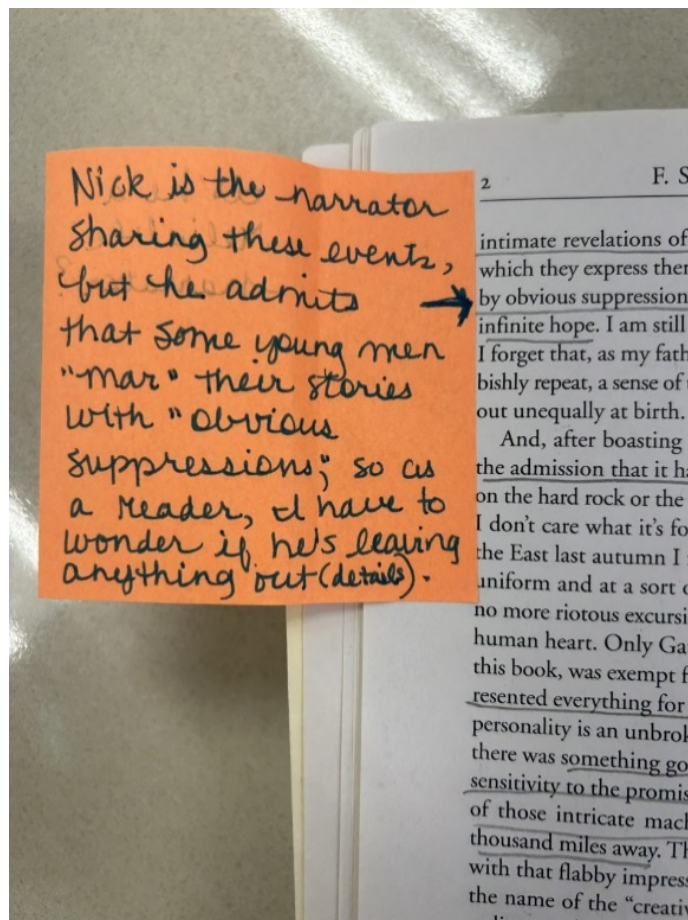 Nick is the narrator
sharing these events,
but he admits
that some young men
"mar" their stories
with "obvious
suppressions", so as
a reader, I have to
wonder if he's leaving
anything out (details).
2
F. S
intimate revelations of
which they express ther
by obvious suppression
infinite hope. I am still
I forget that, as my fath
bishly repeat, a sense of
out unequally at birth.
And, after boasting
the admission that it ha
on the hard rock or the
I don't care what it's fo
the East last autumn I
uniform and at a sort o
no more riotous excursi
human heart. Only Ga
this book, was exempt f
resented everything for
personality is an unbrok
there was something go
sensitivity to the promis
of those intricate mach
thousand miles away. Th
with that flabby impress
the name of the "creativ